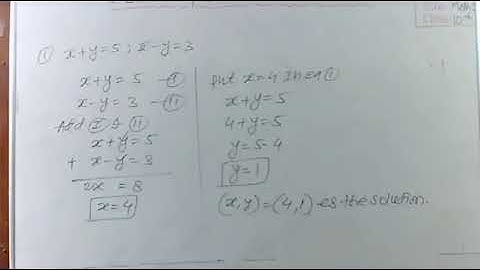 ① x+y=5 ; x-y=3
x+y = 5 -Ⓘ
x-y = 3 -Ⓘⓘ
Add Ⓘ & Ⓘⓘ
x+y = 5
+ x-y = 3
2x = 8
x=4
put x=4 in eq Ⓘ
x+y=5
4+y=5
y=5-4
y=1
(x,y)=(4,1) es the solution.
Maths
10th